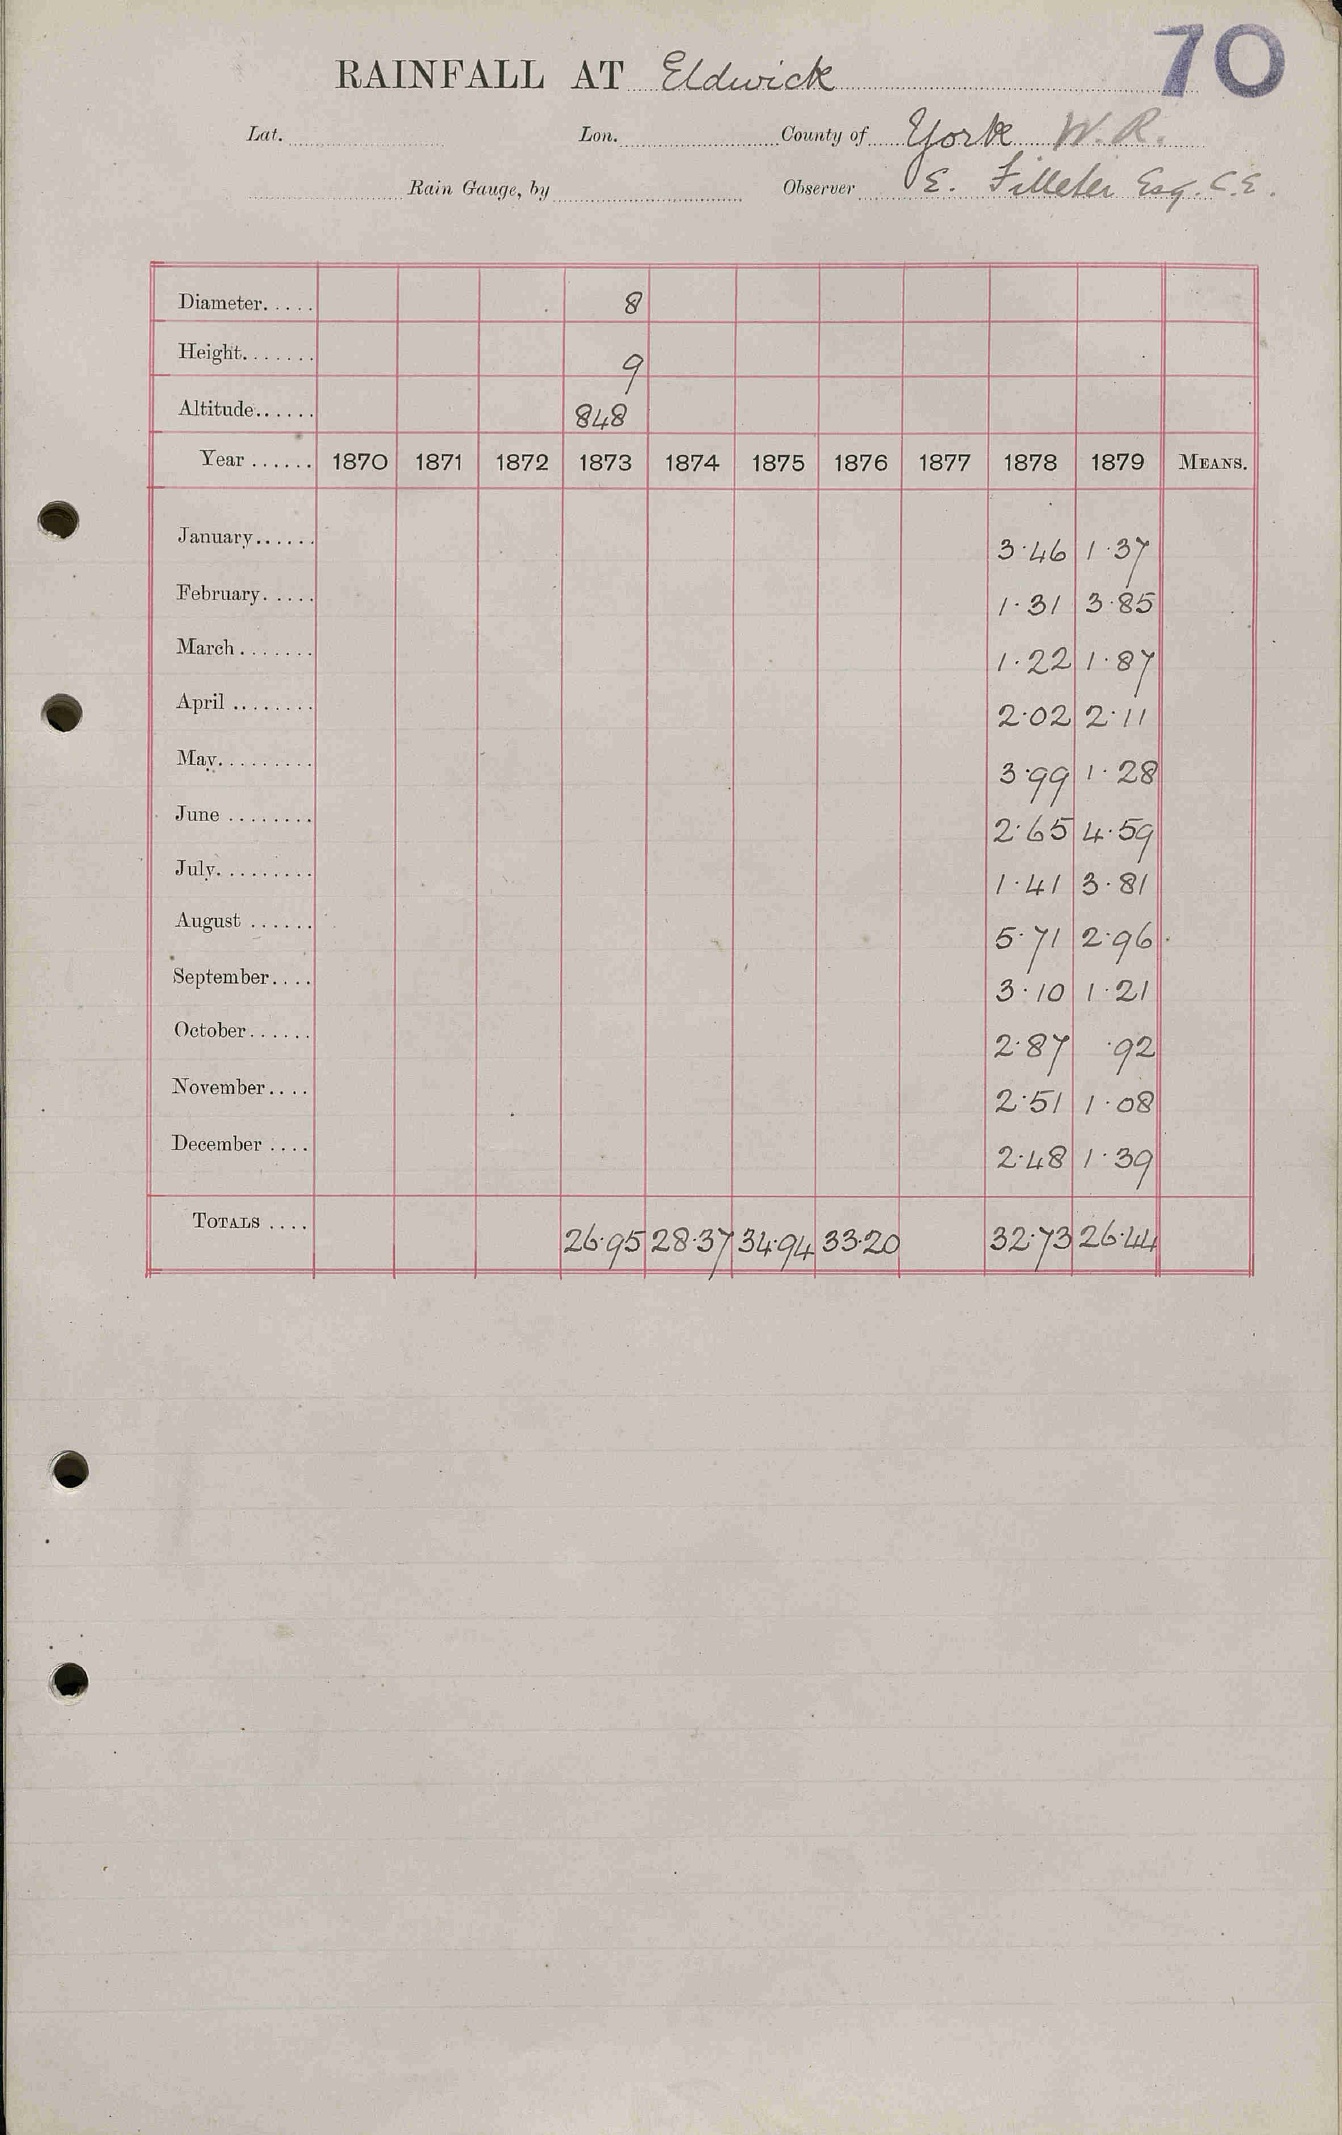 70
RAINFALL AT Eldwick
Lat. Lon. County of York W. R.
Rain Gauge, by Observer E. Filleter Esq. C.E.
Diameter..... 8
Height....... 9
Altitude...... 848
Year ...... 1870 1871 1872 1873 1874 1875 1876 1877 1878 1879 MEANS.
January...... 3.46 1.37
February..... 1.31 3.85
March....... 1.22 1.87
April ........ 2.02 2.11
May......... 3.99 1.28
June ........ 2.65 4.59
July......... 1.41 3.81
August ...... 5.71 2.96
September.... 3.10 1.21
October...... 2.87 .92
November.... 2.51 1.08
December .... 2.48 1.39
TOTALS .... 26.95 28.37 34.94 33.20 32.73 26.44